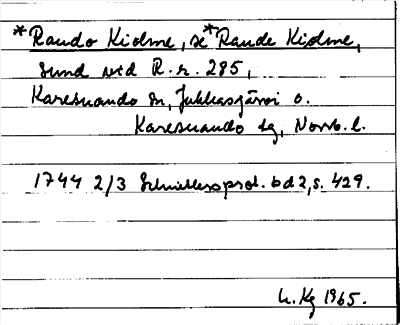 *Rando Kiolme, se *Rande Kiolme,
sund vid R.r. 285,
Karesuando sn, Jukkasjärvi o.
Karesuando tg, Norrb. l.
1744 2/3 Schnitlers prot. bd 2, s. 429.
h. Kg 1965.